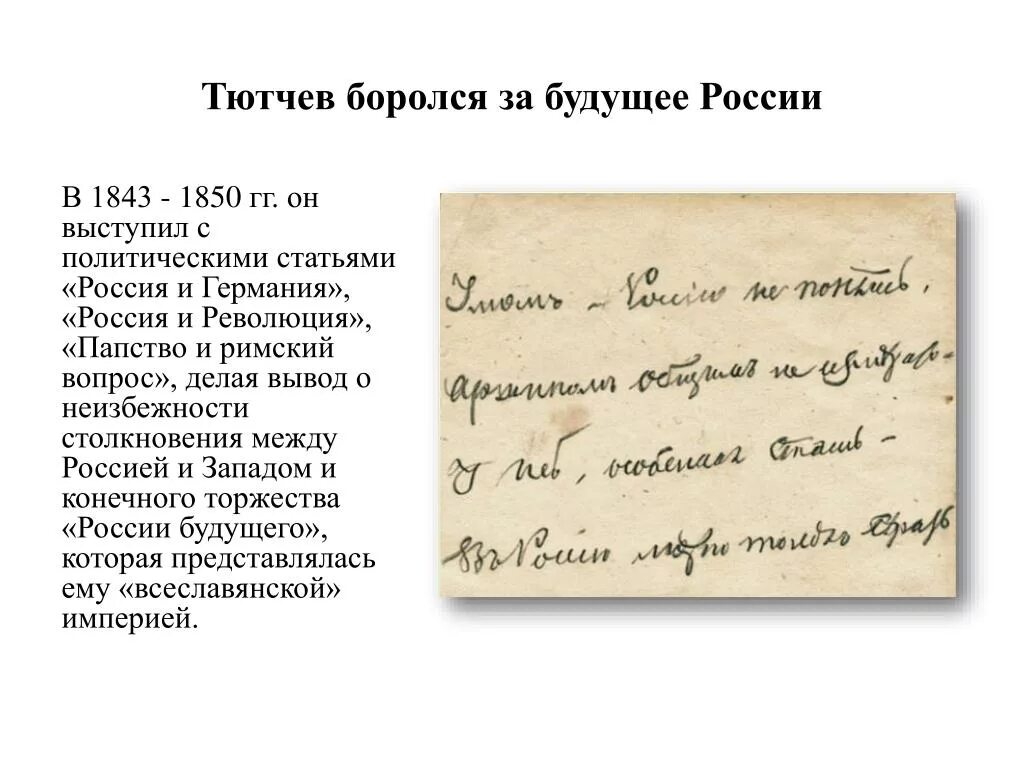 Тютчев боролся за будущее России
В 1843 - 1850 гг. он
выступил с
политическими статьями
«Россия и Германия»,
«Россия и Революция»,
«Папство и римский
вопрос», делая вывод о
неизбежности
столкновения между
Россией и Западом и
конечного торжества
«России будущего»,
которая представлялась
ему «всеславянской»
империей.
Умомъ – Россію не понять,
Аршиномъ общимъ не
У ней, особенная стать –
Въ Россію можно только